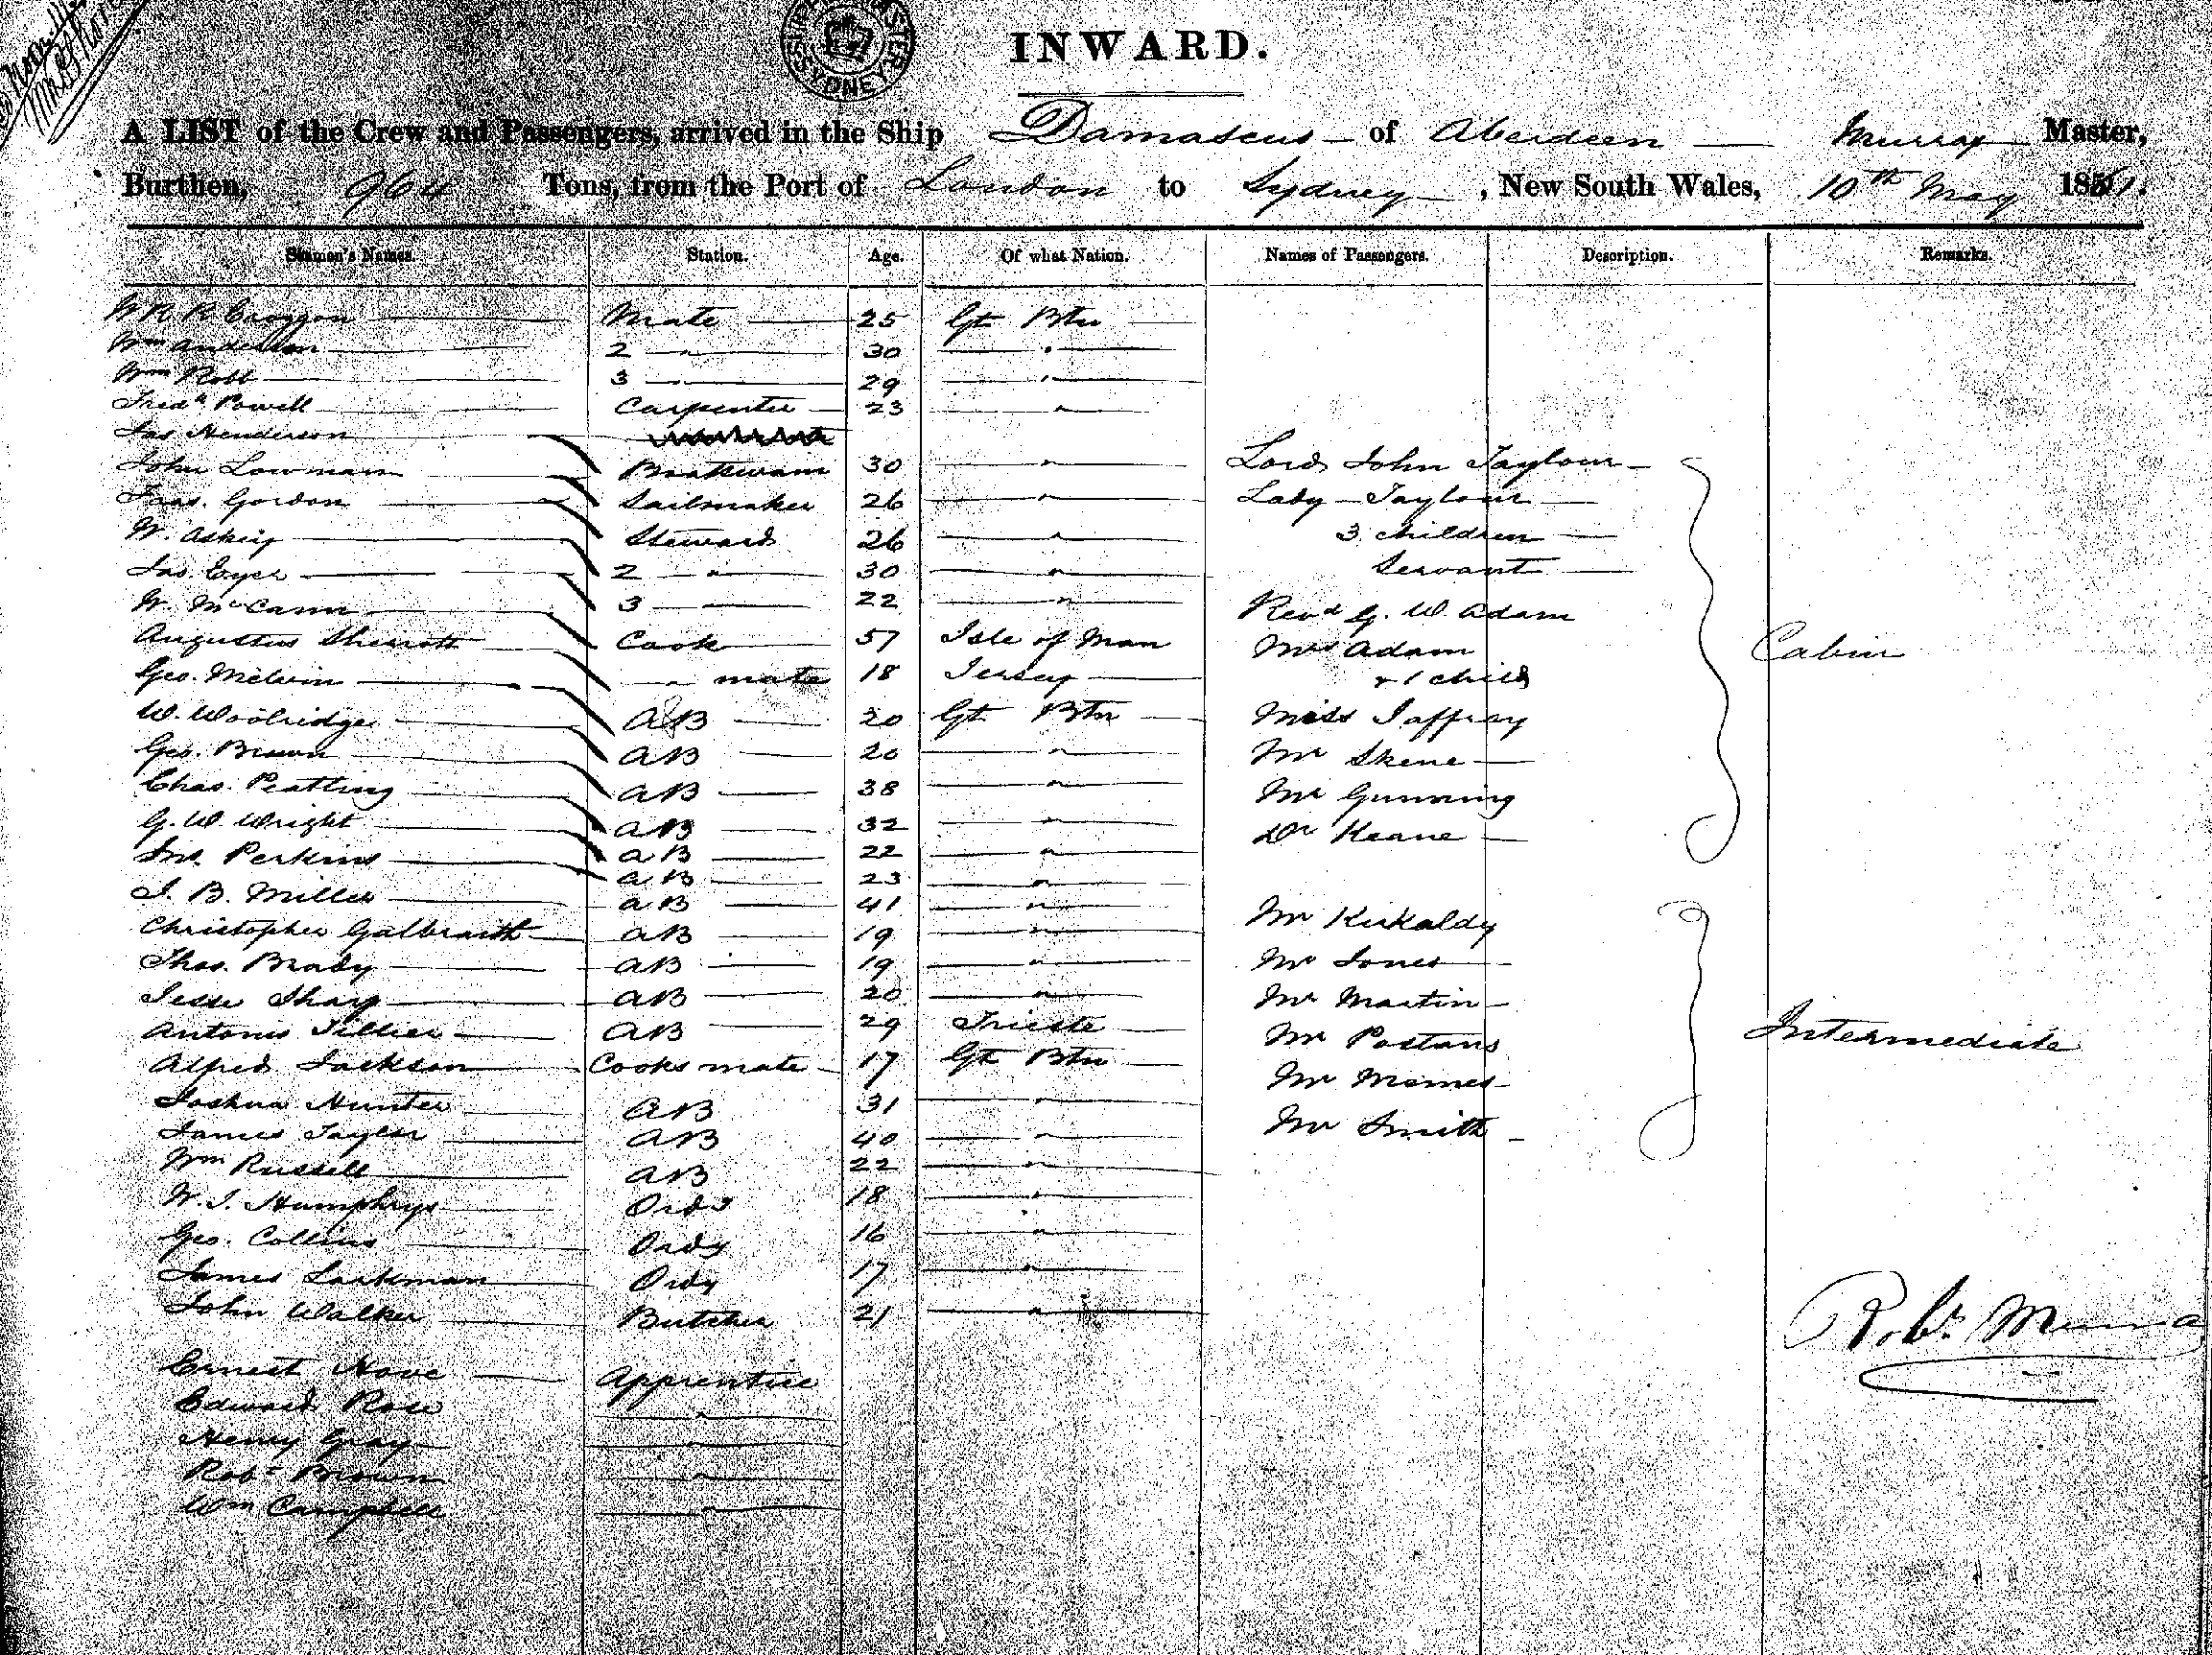 INWARD.
A LIST of the Crew and Passengers, arrived in the Ship Damascus of Aberdeen Murray Master,
Burthen, 964 Tons, from the Port of London to Sydney, New South Wales, 10th May 1861.
Seamen's Names. Station. Age. Of what Nation. Names of Passengers. Description. Remarks.
W R R Croggon Mate 25 Gt Btn
Wm Anderson 2 " 30 "
Wm Robb 3 " 29 "
Fredk Powell Carpenter 23 "
Jas Henderson
John Lowmann Boatswain 30 " Lord John Taylour
Fras. Gordon Sailmaker 26 " Lady Taylour
W. Askig Steward 26 " 3 children
Jas. Eyer 2 " 30 " Servant
W. McCann 3 22 " Revd G. W. Adam
Augustus Sherrott Cook 57 Isle of Man Mrs Adam Cabin
Geo. Melvin " mate 18 Jersey & 1 child
W. Woolridge AB 20 Gt Btn Miss Jaffray
Geo. Brown AB 20 " Mr Skene
Chas. Peatling AB 38 " Mr Gunning
G. W. Wright AB 32 " Dr Keane
Jno. Perkins AB 22 "
AB 23 "
J. B. Miller AB 41 " Mr Kirkaldy
Christopher Galbraith AB 19 "
Thos. Brady AB 19 " Mr Jones
Jesse Sharp AB 20 " Mr Martin
Antonio Tillier AB 29 Trieste Mr Postans Intermediate
Alfred Jackson Cooks mate 17 Gt Btn Mr Mames
Joshua Hunter AB 31 " Mr Smith
James Tayler AB 40 "
Wm Russell AB 22 "
W. J. Humphrys Ordy 18 "
Geo. Collins Ordy 16 "
James Larkman Ordy 17 "
John Walker Butcher 21 " Robt Murra
Ernest Hove Apprentice
Edward Rose "
Henry Gray "
Robt Brown "
Wm Campbell "